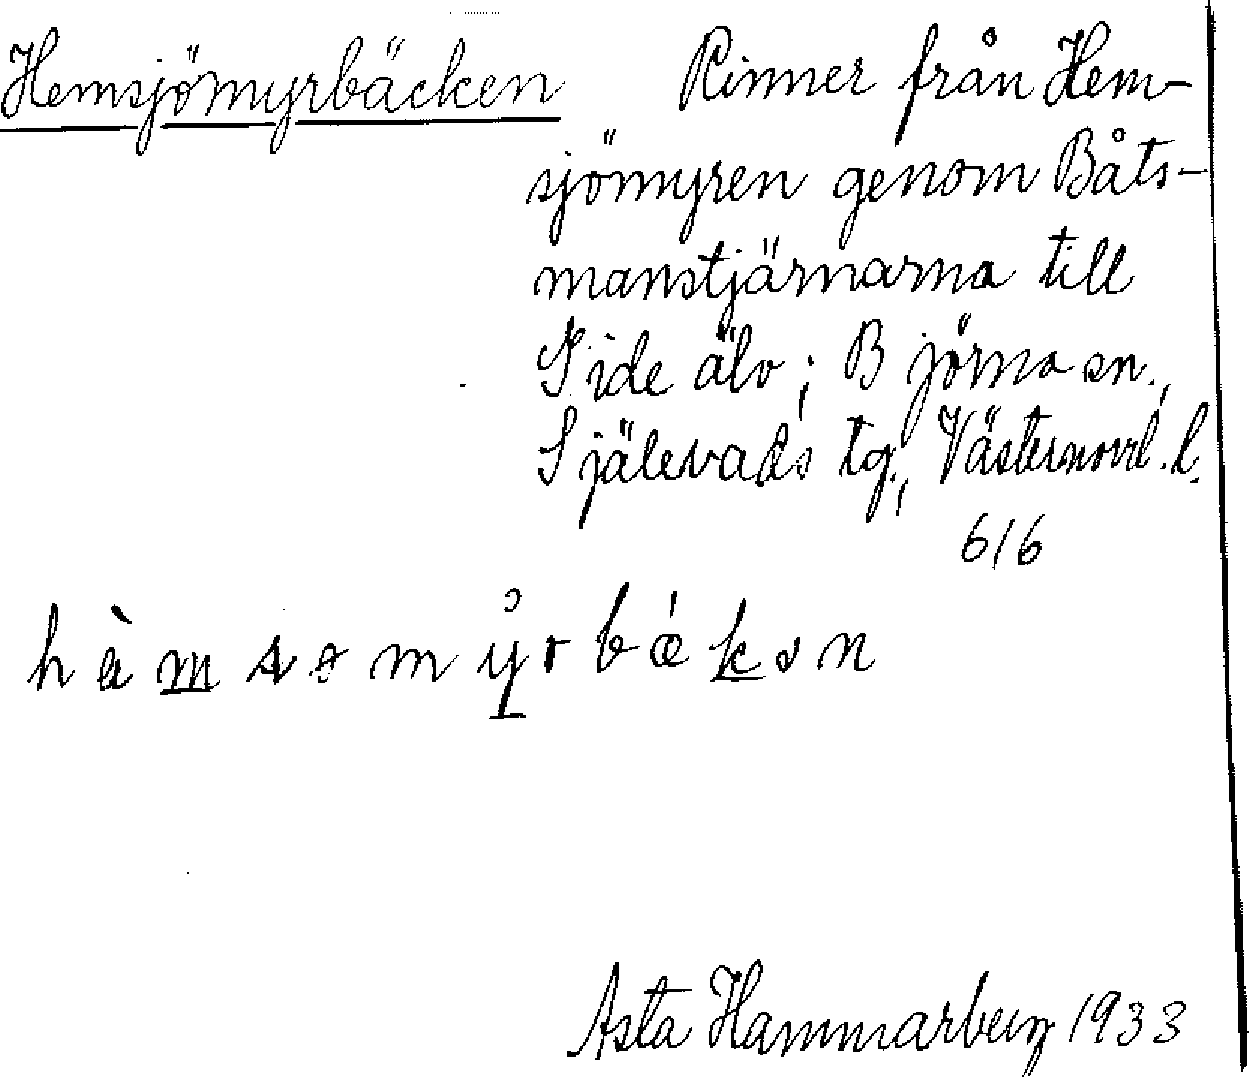 Hemsjömyrbäcken Rinner från Hem-
sjömyren genom Båts-
manstjärnarna till
Gide älv; Björna sn.,
Själevads tg., Västernorrl. l.
6/6
Asta Hammarberg 1933